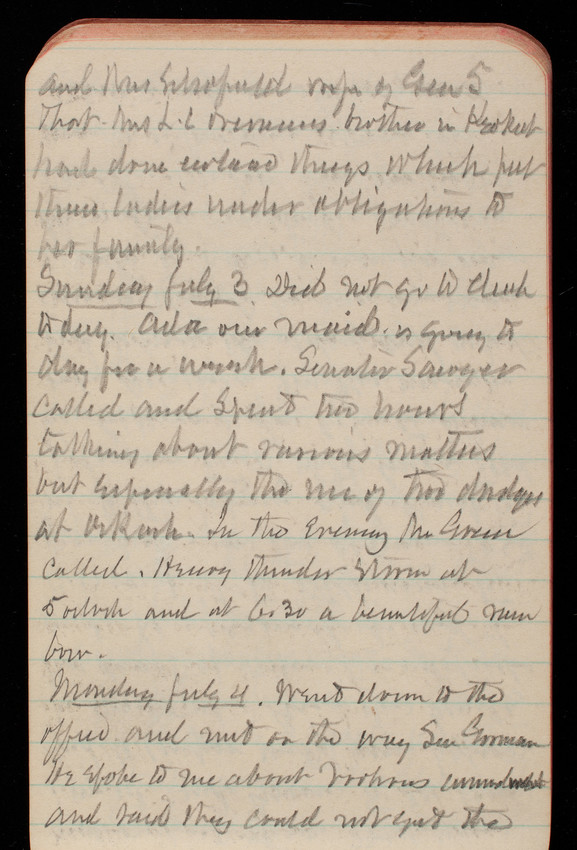 and Mrs Schofield wife of Gen S
That Mrs L. C brother in Keokuk
had done certain things which put
these ladies under obligations to
her family.
Sunday July 3. Did not go to church
to day. Ada our maid is going to
day for a week. Senator Sawyer
called and spent two hours
talking about various matters
but especially the use of two dredges
at Oshkosh. In the evening Mr Green
called. Heavy thunder storm at
5 oclock and at 6.30 a beautiful rain
bow.
Monday July 4. Went down to the
office and met on the way Sen Gorman
He spoke to me about various amendments
and said they could not get the